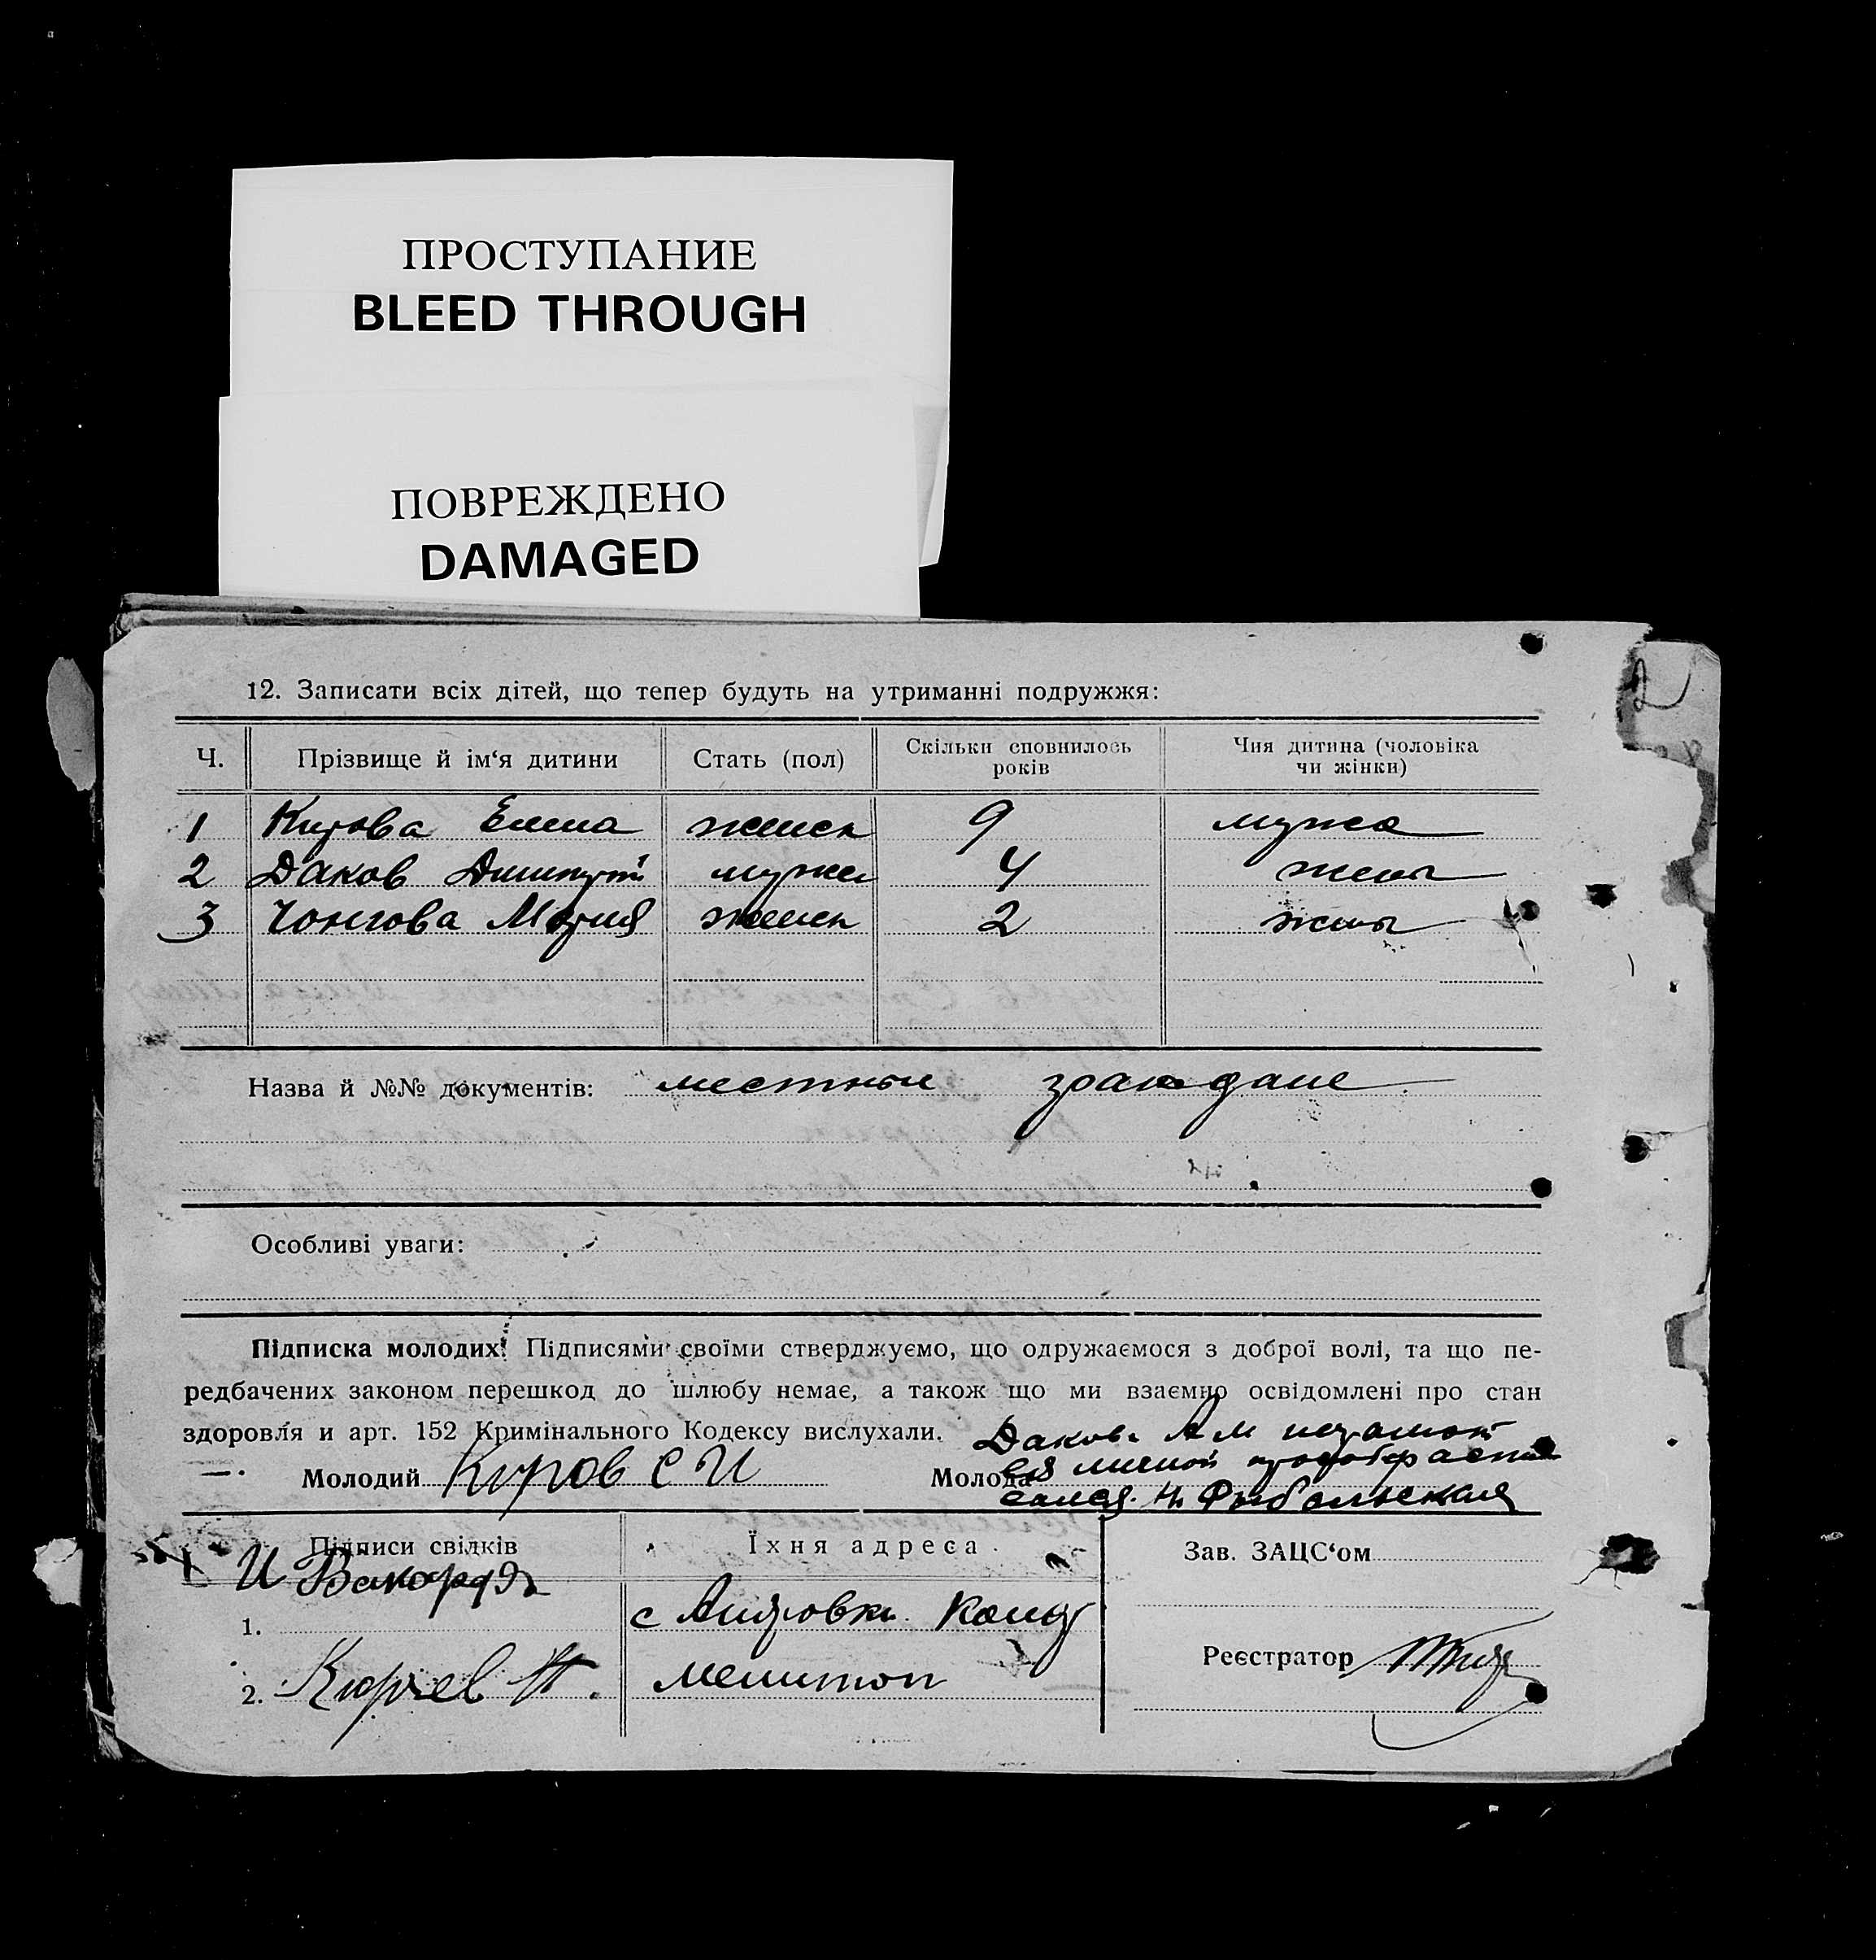 ПРОСТУПАНИЕ
BLEED THROUGH
ПОВРЕЖДЕНО
DAMAGED
2
12. Записати всіх дітей, що тепер будуть на утриманні подружжя:
Ч. Прізвище й ім‘я дитини Стать (пол) Скільки сповнилось років Чия дитина (чоловіка чи жінки)
1 Кирова Елена женск 9 мужа
2 Даков Димитрий мужск 4 жены
3 Чонгова Мария женск 2 жены
Назва й №№ документів: местные граждане
Особливі уваги:
Підписка молодих: Підписями своїми стверджуємо, що одружаємося з доброї волі, та що пе-
редбачених законом перешкод до шлюбу немає, а також що ми взаємно освідомлені про стан
здоровля и арт. 152 Кримінального Кодексу вислухали.
Даков. А М неграмот
Молодий Киров С И Молода
Підписи свідків Їхня адреса Зав. ЗАЦС‘ом
И
1. с
Реєстратор
2. Мелитоп